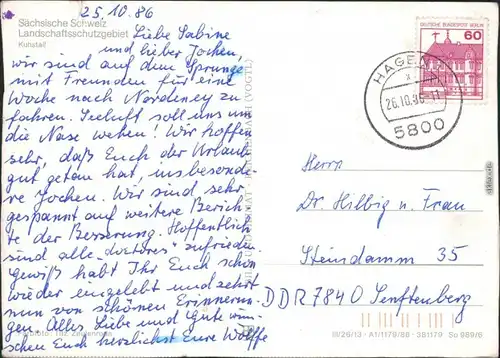 25.10.86
Sächsische Schweiz
Landschaftsschutzgebiet
Kuhstall
Liebe Sabine
und lieber Jochen,
wir sind auf dem Sprunge
mit Freunden für eine
Woche nach Norderney zu
fahren. Seeluft soll uns um
die Nase wehen! Wir hoffen
sehr, daß Euch der Urlaub
gut getan hat, insbesonde-
re Jochen. Wir sind sehr
gespannt auf weitere Berich-
te der Besserung. Hoffentlich
sind alle „doctores" zufrieden.
Gewiß habt Ihr Euch schon
wieder eingelebt und zehrt
nun von schönen Erinnerun-
gen. Alles Liebe und Gute wün-
schen Euch herzlichst Eure Wölffe
DEUTSCHE BUNDESPOST BERLIN
60
HAGEN
26.10.86-11
5800
Herrn
Dr. Hilbig u. Frau
Steindamm 35
DDR 7840 Senftenberg
III/26/13 · A1/1176/88 · 3B1179 So 989/6